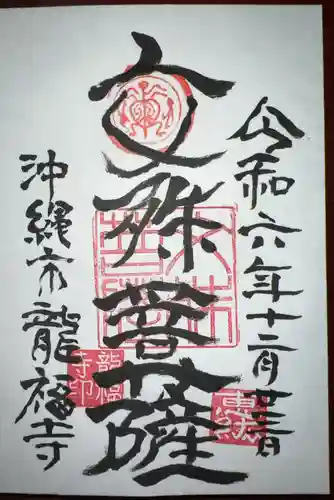 令和六年十二月廿三日
文殊菩薩
沖縄市龍福寺
龍福
寺印